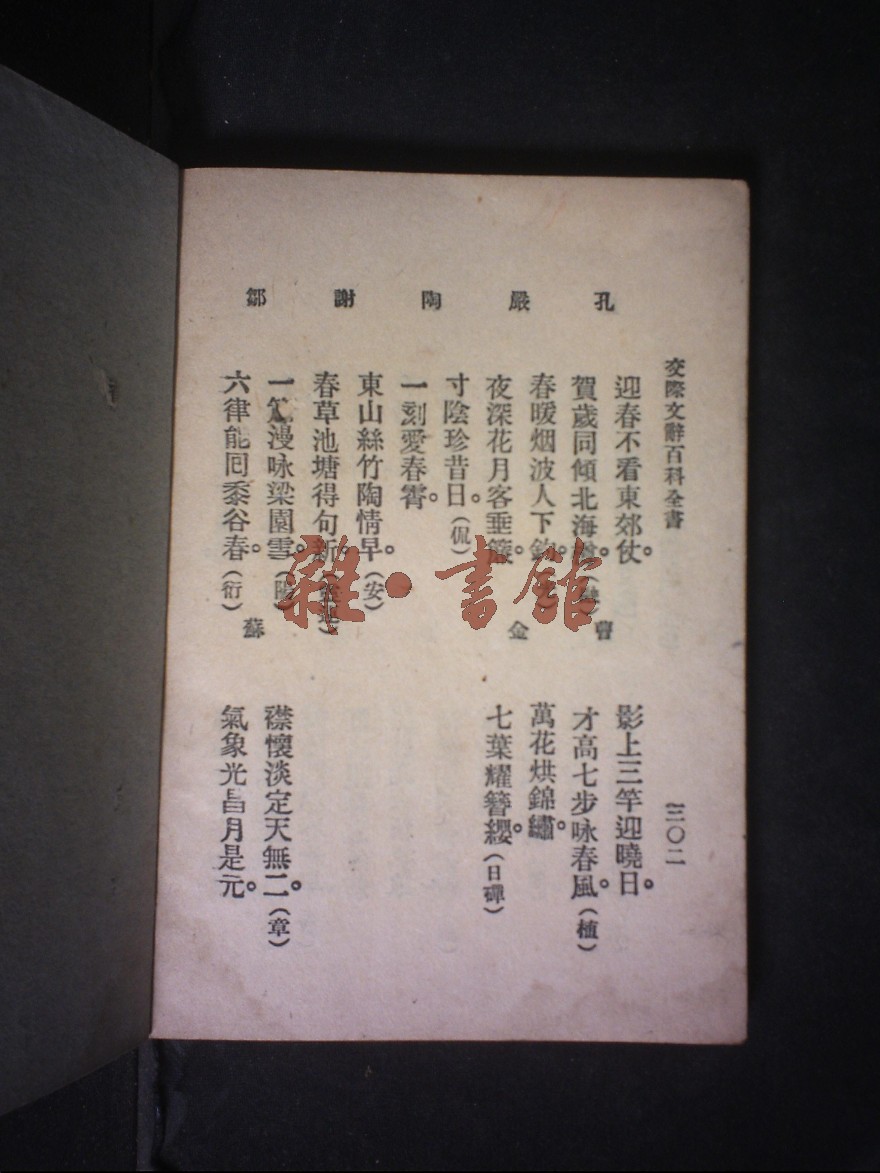 交際文辭百科全書
三〇二
孔
迎春不看東郊仗。
賀歲同傾北海
曹
影上三竿迎曉日。
才高七步咏春風。(植)
嚴
春暖烟波人下釣。
夜深花月客垂簾。
金
萬花烘錦繡。
七葉耀簪纓。(日磾)
陶
寸陰珍昔日。(侃)
一刻愛春霄。
謝
東山絲竹陶情早。(安)
春草池塘得句新。
鄒
一 漫咏梁園雪。(陽)
六律能囘黍谷春。(衍)
蘇
襟懷淡定天無二。(章)
氣象光昌月是元。
雜·書館